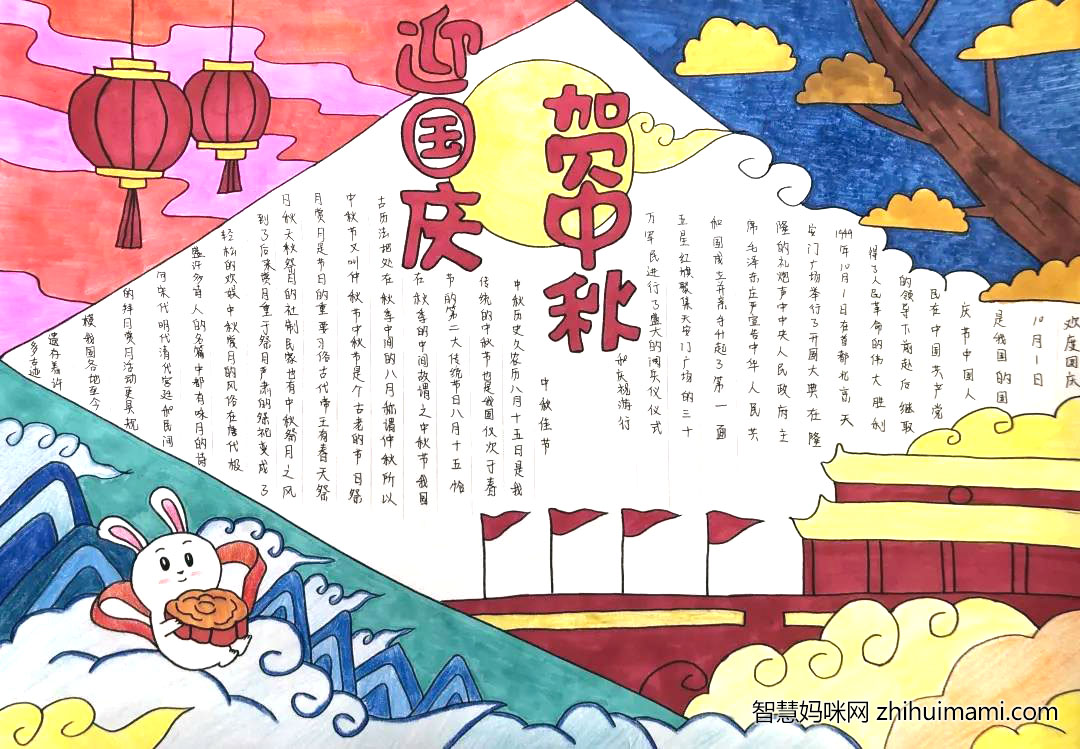 迎国庆
贺中秋
欢度国庆
10月1日
是我国的国
庆节中国人
民在中国共产党
的领导下前赴后继取
得了人民革命的伟大胜利
1949年10月1日在首都北京天
安门广场举行了开国大典在隆
隆的礼炮声中中央人民政府主
席毛泽东庄严宣告中华人民共
和国成立并亲手升起了第一面
五星红旗聚集天安门广场的三十
万军民进行了盛大的阅兵仪仪式
和庆祝游行
中秋佳节
中秋历史久农历八月十五日是我
传统的中秋节也是我国仅次于春
节的第二大传统节日八月十五恰
在秋季的中间故谓之中秋节我国
古历法把处在秋季中间的八月称谓仲秋所以
中秋节又叫仲秋节中秋节是个古老的节日祭
月赏月是节日的重要习俗古代帝王有春天祭
日秋天秋祭月的社制民家也有中秋祭月之风
到了后来赏月重于祭月严肃的祭祀变成了
轻松的欢娱中秋赏月的风俗在唐代极
盛许多诗人的名篇中都有咏月的诗
句宋代明代清代宫廷和民间
的拜月赏月活动更具规
模我国各地至今
遗存着许
多古迹
智慧妈咪网 zhihuimami.com